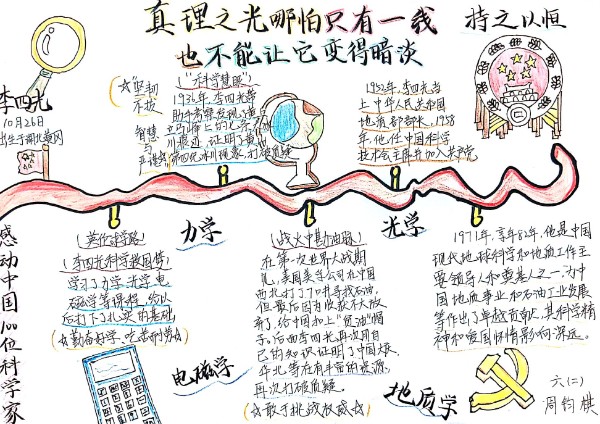 真理之光哪怕只有一线
也不能让它变得暗淡
持之以恒
李四光
10月26日
出生于湖北黄冈
☆"坚韧不拔
智慧与
("科学慧眼")
1936年,李四光等
助手考察发现了黄
证明了黄
第四纪冰川现象,打破质疑
1952年,李四光当
上中华人民共和国
地质部部长,1958
年,他任中国科学
技术会主席并加入共产党
感动中国100位科学家
力学
光学
(英伦求学路)
(李四光科学救国梦)
学习了力学,光学,电
磁学等课程,给以
后打下了扎实的基础
(☆勤奋好学、吃苦耐劳☆)
电磁学
(战火中勘油脉)
在第一次世界大战期
间,美国美孚公司在中国
西北打了7口井寻找石油,
但最后因为收获不大放
弃了,给中国扣上"贫油"帽
子,后面李四光再次用自
己的知识证明了中国
华北等在有丰富的资源,
再次打破质疑
(☆敢于挑战权威☆)
地质学
1971年,享年82年,他是中国
现代地球科学和地质工作主
要领导人和奠基人之一,为中
国地质事业和石油工业发展
等作出了卓越贡献,其科学精
神和爱国怀情影响深远。
六(二)
周钧棋